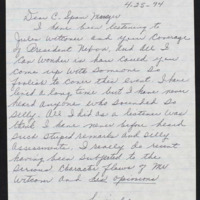 4-28-94
Dear C-Span Manager
I have been listening to
Jules Witcover and your Coverage
of President Nixon, and all I
can wonder is how could you
come up with someone so
foolish to cover this event. I have
lived a long time but I have never
heard anyone who sounded so
silly. All I had as a listener was
that I have never before heard
such stupid remarks and silly
assessments. I surely do resent
having been subjected to the
personal character flaws of Mr
Witcover and his opinions